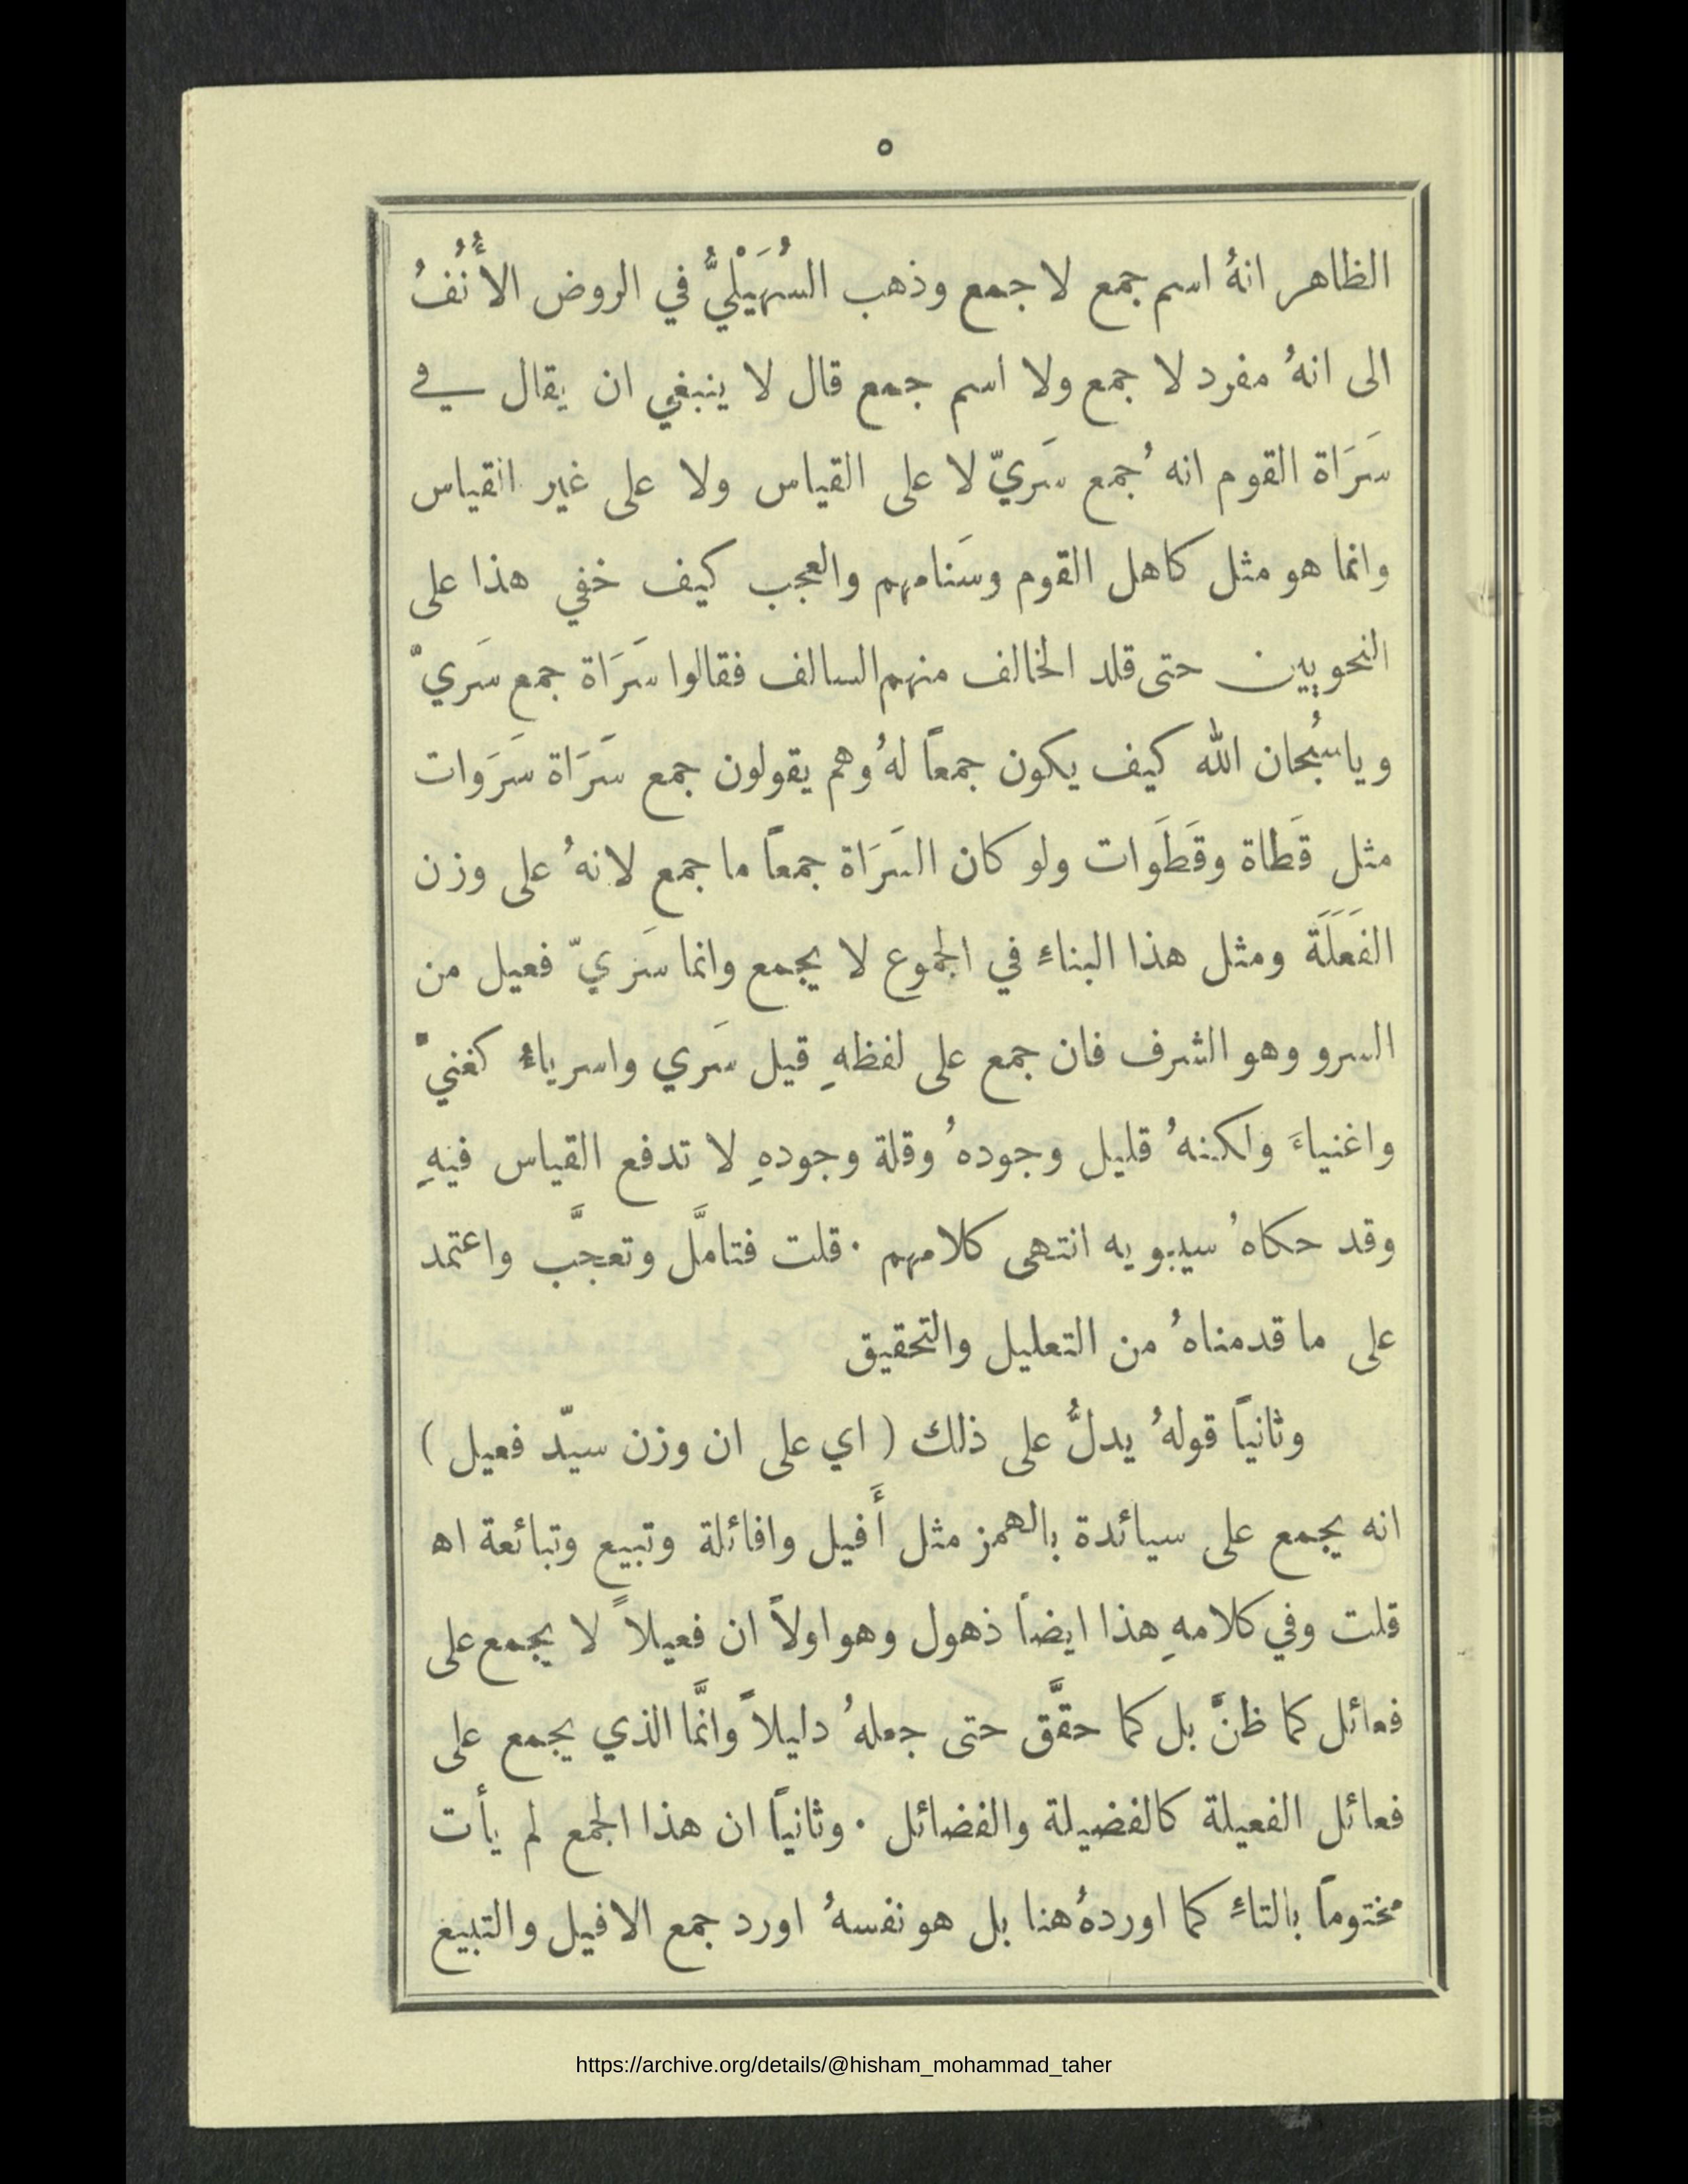 ٥
الظاهر انهُ اسم جمع لا جمع وذهب السُهَيْلِيُّ في الروض الأُنُفُ
الى انهُ مفرد لا جمع ولا اسم جمع قال لا ينبغي ان يقال في
سَرَاة القوم انهُ جمع سَريّ لا على القياس ولا على غير القياس
وانما هو مثل كاهل القوم وسَنامهم والعجب كيف خفي هذا على
النحويين حتى قلد الخالف منهم السالف فقالوا سَرَاة جمع سَريّ
وياسُبحان الله كيف يكون جمعاً لهُ وهم يقولون جمع سَرَاة سَرَوات
مثل قَطاة وقَطَوات ولو كان السَرَاة جمعاً ما جمع لانهُ على وزن
الفَعَلَة ومثل هذا البناءِ في الجموع لا يجمع وانما سَريّ فعيل من
السرو وهو الشرف فان جمع على لفظهِ قيل سَري واسرياءُ كغنيّ
واغنياءَ ولكنهُ قليل وجودهُ وقلة وجودهِ لا تدفع القياس فيهِ
وقد حكاهُ سيبويه انتهى كلامهم · قلت فتامَّل وتعجَّب واعتمد
على ما قدمناهُ من التعليل والتحقيق
وثانياً قولهُ يدلُّ على ذلك ( اي على ان وزن سيّد فعيل )
انه يجمع على سيائدة بالهمز مثل أَفيل وافائلة وتبيع وتبائعة اه
قلت وفي كلامهِ هذا ايضاً ذهول وهو اولاً ان فعيلاً لا يجمع على
فعائل كما ظنَّ بل كما حقَّق حتى جعلهُ دليلاً وانَّما الذي يجمع على
فعائل الفعيلة كالفضيلة والفضائل · وثانياً ان هذا الجمع لم يأت
مختوماً بالتاءِ كما اوردهُ هنا بل هو نفسهُ اورد جمع الافيل والتبيغ
https://archive.org/details/@hisham_mohammad_taher